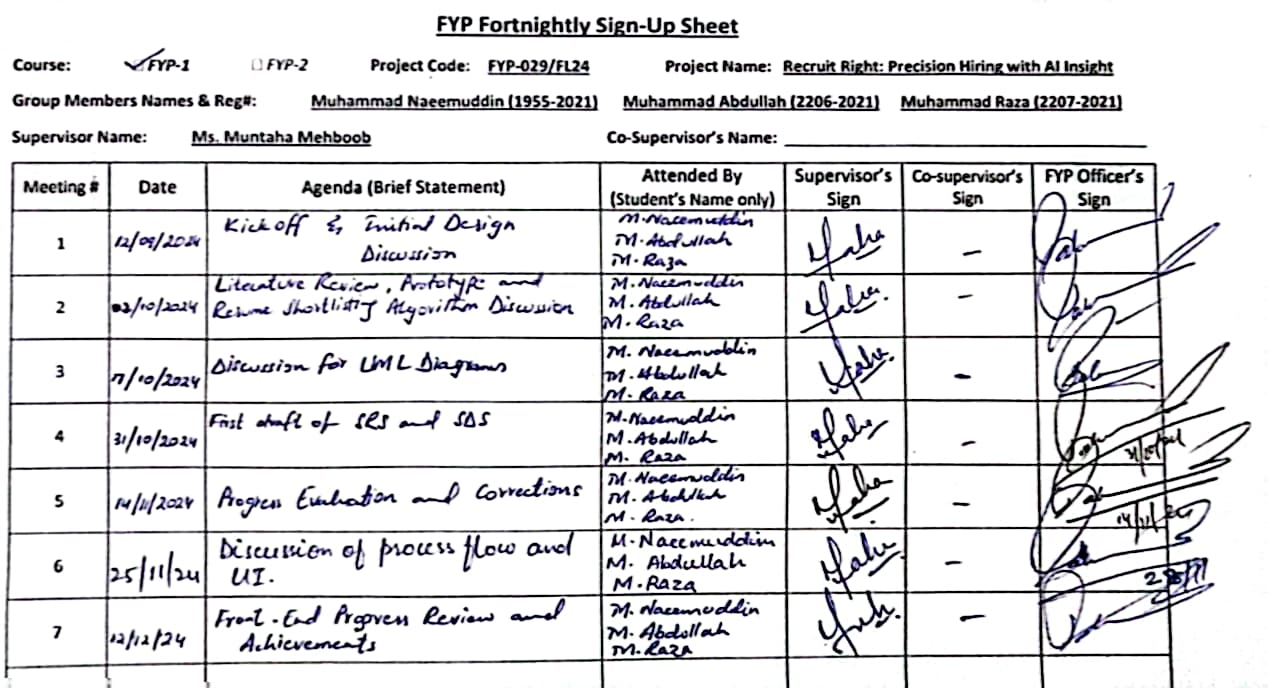 FYP Fortnightly Sign-Up Sheet
Course: FYP-1 FYP-2 Project Code: FYP-029/FL24 Project Name: Recruit Right: Precision Hiring with AI Insight
Group Members Names & Reg#: Muhammad Naeemuddin (1955-2021) Muhammad Abdullah (2206-2021) Muhammad Raza (2207-2021)
Supervisor Name: Ms. Muntaha Mehboob Co-Supervisor's Name:
Meeting # Date Agenda (Brief Statement) Attended By (Student's Name only) Supervisor's Sign Co-supervisor's Sign FYP Officer's Sign
1 12/09/2024 Kick off & Initial Design
Discussion
M. Naeemuddin
M. Abdullah
M. Raza
–
2 02/10/2024 Literature Review, Prototype and
Resume Shortlisting Algorithm Discussion
M. Naeemuddin
M. Abdullah
M. Raza
–
3 17/10/2024 Discussion for UML Diagrams
M. Naeemuddin
M. Abdullah
M. Raza
–
4 31/10/2024 First draft of SRS and SDS
M. Naeemuddin
M. Abdullah
M. Raza
–
31/10/24
5 14/11/2024 Progress Evaluation and Corrections
M. Naeemuddin
M. Abdullah
M. Raza.
–
14/11/24
6 25/11/24 Discussion of process flow and
UI.
M. Naeemuddin
M. Abdullah
M. Raza
–
7 12/12/24 Front-End Progress Review and
Achievements
M. Naeemuddin
M. Abdullah
M. Raza
–